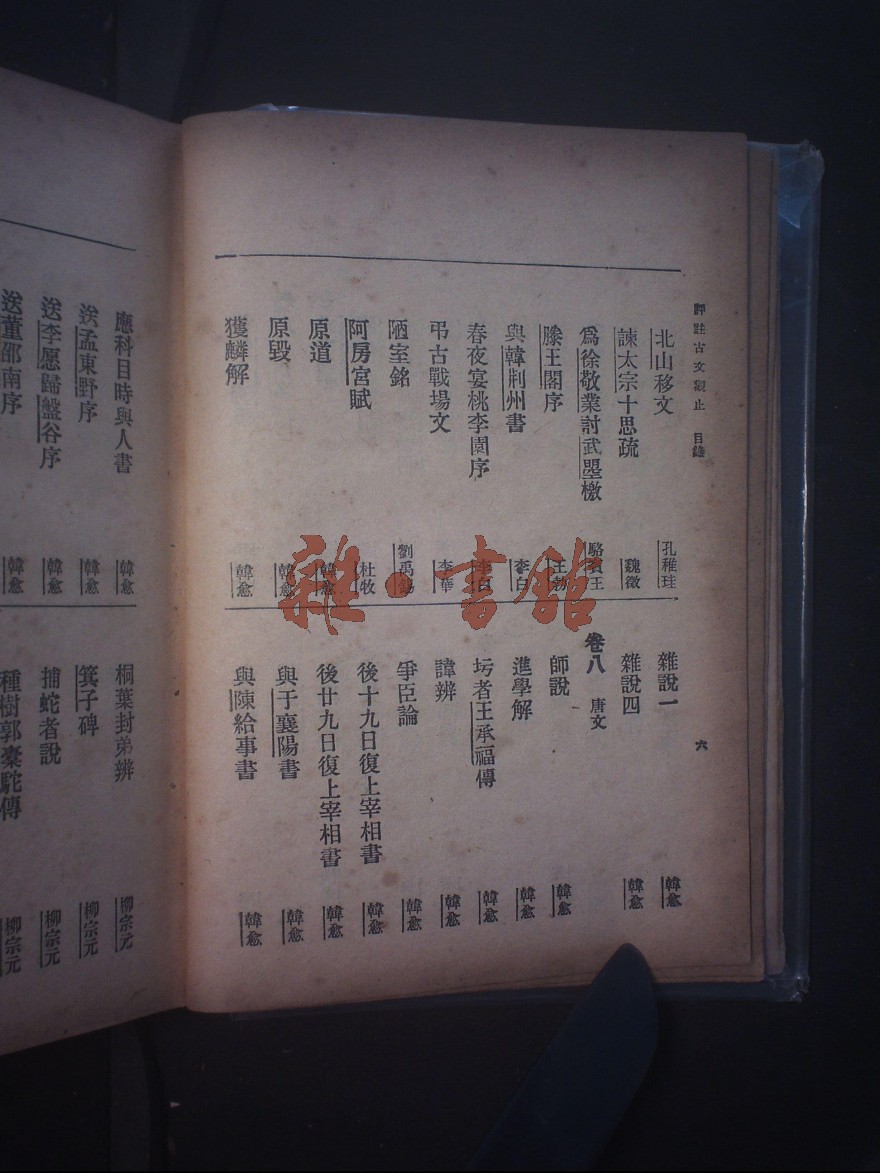 評註古文觀止 目錄
六
北山移文 孔稚珪
諫太宗十思疏 魏徵
爲徐敬業討武曌檄 駱賓王
滕王閣序 王勃
與韓荆州書 李白
春夜宴桃李園序 李白
弔古戰場文 李華
陋室銘 劉禹錫
阿房宮賦 杜牧
原道 韓愈
原毀 韓愈
獲麟解 韓愈
雜說一 韓愈
雜說四 韓愈
卷八 唐文
師說 韓愈
進學解 韓愈
圬者王承福傳 韓愈
諱辨 韓愈
爭臣論 韓愈
後十九日復上宰相書 韓愈
後廿九日復上宰相書 韓愈
與于襄陽書 韓愈
與陳給事書 韓愈
應科目時與人書 韓愈
送孟東野序 韓愈
送李愿歸盤谷序 韓愈
送董邵南序 韓愈
桐葉封弟辨 柳宗元
箕子碑 柳宗元
捕蛇者說 柳宗元
種樹郭橐駝傳 柳宗元
雜·書館